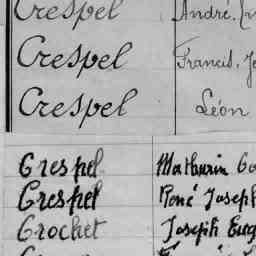 Crespel André.
Crespel Francis.
Crespel Léon
Crespel Mathurin
Crespel René Joseph
Crochet Joseph Eug